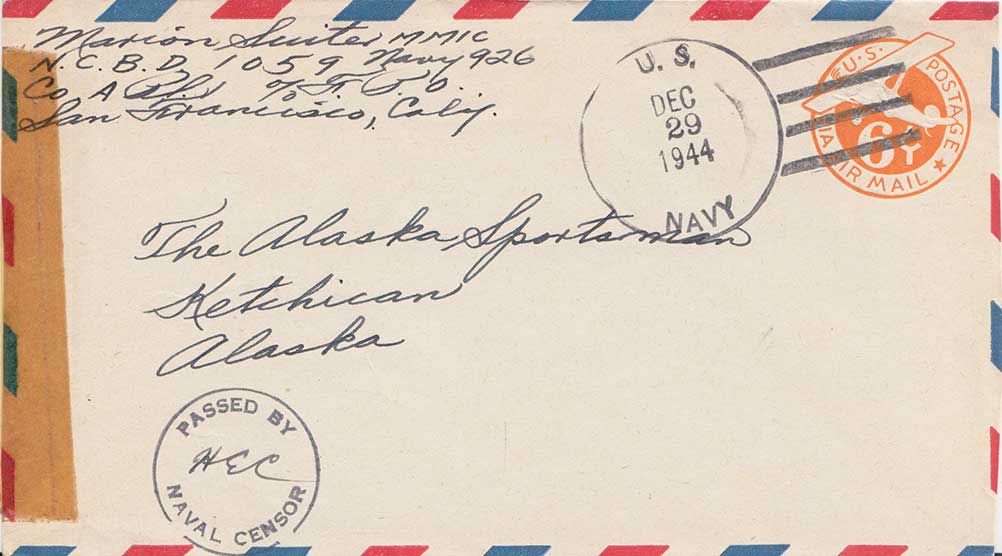 Marion Suiter MM1C
N.C.B.D. 1059 Navy 926
Co. A c/o F.P.O.
San Francisco, Calif.
U.S.
DEC
29
1944
NAVY
U.S. POSTAGE
6¢
VIA AIR MAIL
The Alaska Sportsman
Ketchican
Alaska
PASSED BY
HEC
NAVAL CENSOR